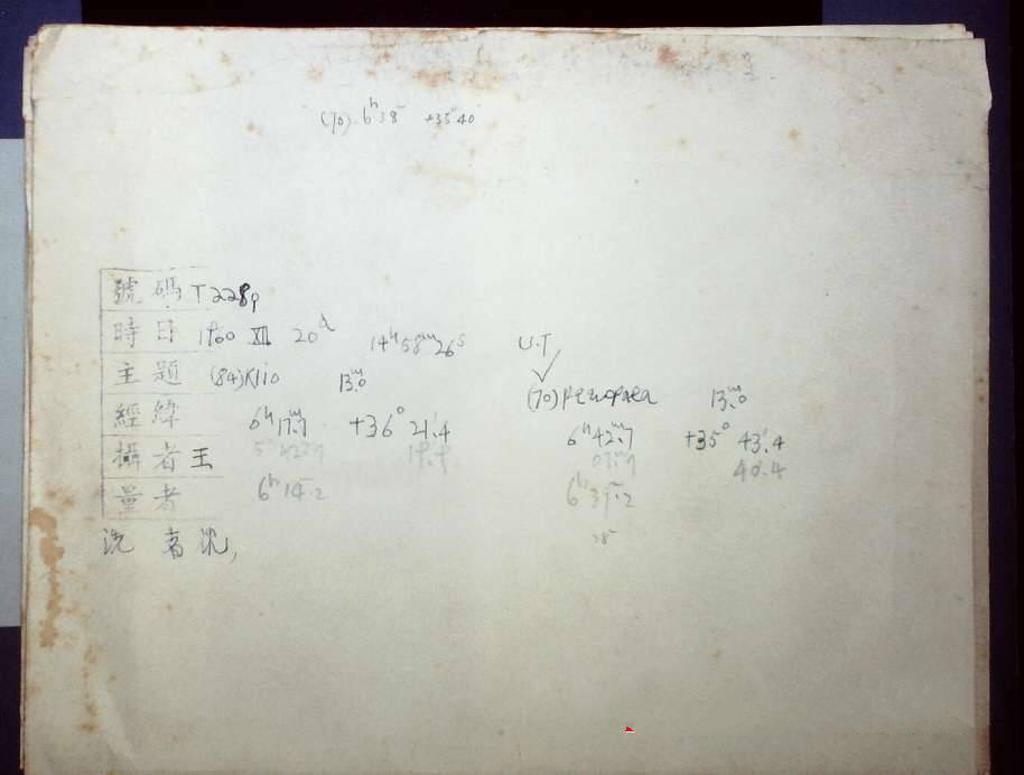 (70) 6ʰ38ᵐ +35°40′
號碼 T228p
時日 1960 XII 20ᵈ 14ʰ58ᵐ26ˢ U.T
主題 (84)Klio 13ᵐ.0 (70) 13ᵐ.0
經緯 6ʰ17ᵐ.7 +36°21′.4 6ʰ42ᵐ.7 +35°43′.4
攝者 王 40.4
量者 6ʰ14ᵐ.2 6ʰ39ᵐ.2
洗者 沈,